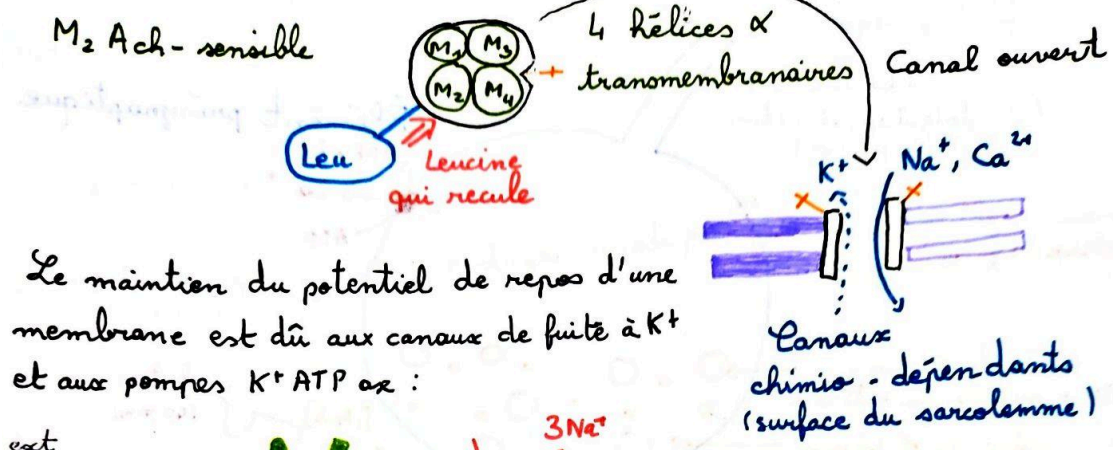 M₂ Ach-sensible
M₁ M₃
M₂ M₄
4 hélices α
transmembranaires
Canal ouvert
Leu
Leucine
qui recule
K⁺
Na⁺, Ca²⁺
Le maintien du potentiel de repos d'une
membrane est dû aux canaux de fuite à K⁺
et aux pompes K⁺ ATP ase :
Canaux
chimio-dépendants
(surface du sarcolemme)
ext
3Na⁺